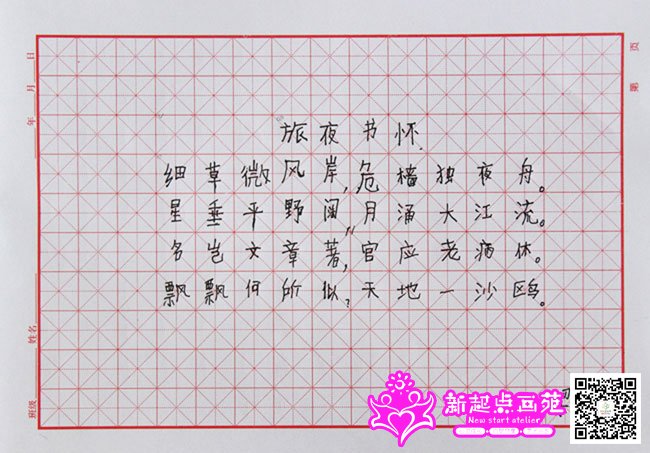 第 页
年 月 日
旅夜书怀.
细草微风岸,危樯独夜舟。
星垂平野阔,月涌大江流。
名岂文章著,官应老病休。
飘飘何所似?天地一沙鸥。
姓名
班级
新起点画苑
New start atelier